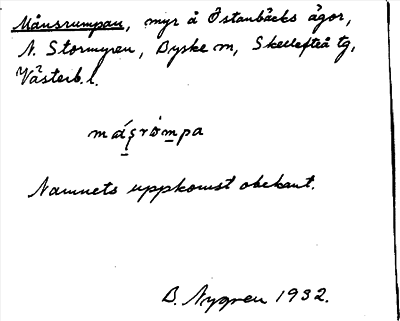 Månsrumpan, myr å Östanbäcks ägor,
N. Stormyren, Byske sn, Skellefteå tg,
Västerb. l.
mɑ́s̩rømpa
Namnets uppkomst obekant.
B. Nygren 1932.